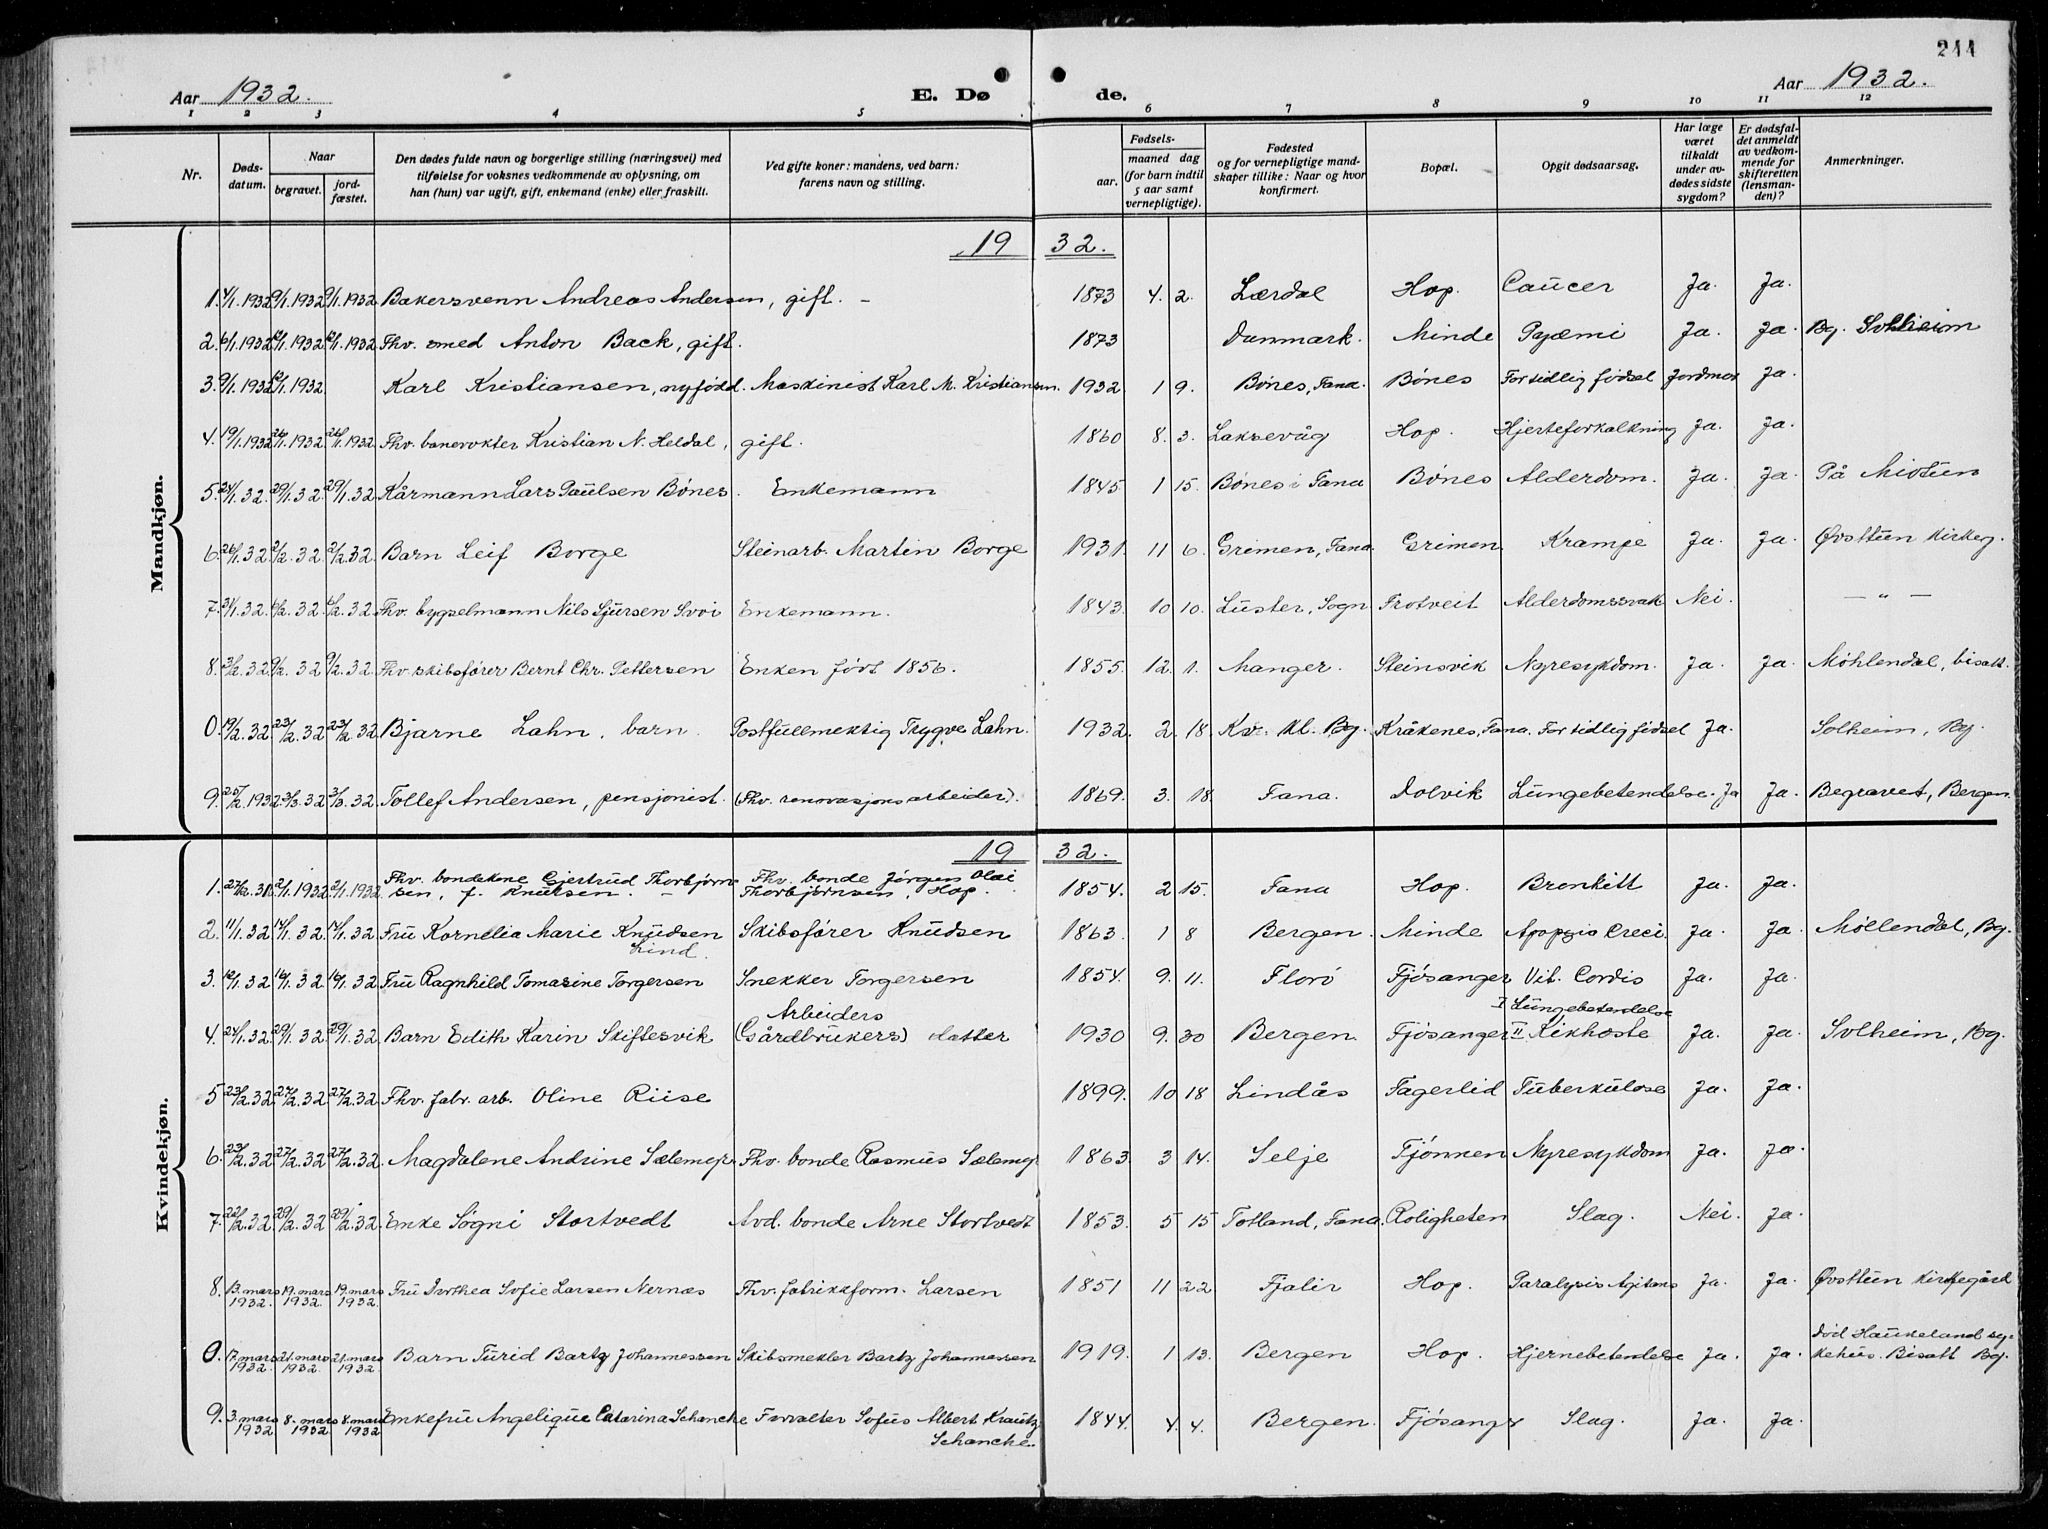 244
Aar 1932. E. Dø de. Aar 1932.
1 2 3 4 5 6 7 8 9 10 11 12
Nr. Døds-datum. Naar begravet. jord-fæstet. Den dødes fulde navn og borgerlige stilling (næringsvei) med tilføielse for voksnes vedkommende av oplysning, om han (hun) var ugift, gift, enkemand (enke) eller fraskilt. Ved gifte koner: mandens, ved barn: farens navn og stilling. Fødsels- aar. maaned dag (for barn indtil 5 aar samt vernepligtige). Fødested og for vernepligtige mand-skaper tillike: Naar og hvor konfirmert. Bopæl. Opgit dødsaarsag. Har læge været tilkaldt under av-dødes sidste sygdom? Er dødsfal-det anmeldt av vedkom-mende for skifteretten (lensman-den)? Anmerkninger.
Mandkjøn.
19 32.
1. 4/1.1932 9/1.1932 9/1.1932 Bakersvenn Andreas Andersen, gift. – 1873 4. 2. Lærdal Hop. Cancer Ja. Ja.
2. 6/1.1932 12/1.1932 12/1.1932 Fhv. smed Anton Back, gift. 1873 Danmark. Minde Pyæmi Ja. Ja. Bg. Solheim
3. 9/1.1932 12/1.1932 Karl Kristiansen, nyfødd. Maskinist Karl M. Kristiansen. 1932. 1 9. Bønes, Fana. Bønes For tidlig fødsel Jordmor Ja.
4. 19/1.1932 26/1.1932 26/1.1932 Fhv. banevokter Kristian N. Heldal, gift. 1860 8. 3. Laksevåg Hop. Hjerteforkalkning Ja. Ja.
5. 24/1.32 29/1.32. 29/1.32 Kårmann Lars Paulsen Bønes. Enkemann 1845 1 15. Bønes i Fana Bønes Alderdom. Ja. Ja. På Midtun
6. 26/1.32 2/2.32. 2/2.32. Barn Leif Borge Steinarb. Martin Borge 1931. 11 6. Grimen, Fana. Grimen. Krampe Ja. Ja. Øvsttun kirkeg.
7. 31/1.32. 6/2.32 6/2.32. Fhv. bygselmann Nils Sjursen Svoi Enkemann. 1843. 10 10. Luster, Sogn Frotveit Alderdomssvak Nei. — „ —
8. 3/2.32 9/2.32 9/2.32. Fhv. skibsfører Bernt Chr. Pettersen Enken født 1856. 1855. 12. 1. Manger. Steinsvik Nyresykdom. Ja. Ja. Møhlendal, bisatt.
0. 19/2.32. 23/2.32 23/2.32 Bjarne Lahn, barn. Postfullmektig Trygve Lahn. 1932. 2. 18. Kv. kl. Bg. Kråkenes, Fana. For tidlig fødsel Ja. Solheim, Bg.
9. 25/2.1932. 3/3.32 3/3.32. Tollef Andersen, pensjonist. (Fhv. renovasjonsarbeider). 1869. 3. 18. Fana. Dolvik Lungebetendelse. Ja Ja. Begravet, Bergen.
Kvindekjøn.
19 32.
1. 27/12.31 2/1.1932 2/1.1932 Fhv. bondekone Gjertrud Thorbjørn-sen, f. Knutsen. – Fhv. bonde Jørgen Olai Thorbjørnsen, Hop. 1854. 2 15. Fana Hop. Bronkitt Ja. Ja.
2. 11/1.32 14/1.32 14/1.32 Fru Kornelia Marie Knudsen Lind. Skibsfører Knudsen 1863. 1 8 Bergen. Minde Ja. Ja. Møllendal, Bg.
3. 12/1.32 16/1.32 16/1.32 Fru Ragnhild Tomasine Torgersen Snekker Torgersen 1854. 9. 11. Florø Fjøsanger Vit. Cordis Ja. Ja.
4. 24/1.32 29/1.32 29/1.32 Barn Edith Karin Skiftesvik Arbeiders (Gårdbrukers) datter 1930 9. 30 Bergen Fjøsanger I Lungebetendelse II Kikhoste Ja. Ja. Solheim, Bg.
5 23/2.32 27/2.32 27/2.32. Fhv. fabr. arb. Oline Riise 1899. 10 18 Lindås Fagerlid Tuberkulose Ja. Ja.
6. 23/2.32 27/2.32 27/2.32. Magdalene Andrine Sælemyr Fhv. bonde Rasmus Sælemyr 1863. 3 14. Selje Fjønnen Nyresykdom Ja. Ja.
7. 22/2.32. 29/2.32 29/2.32 Enke Søgni Stortvedt Avd. bonde Arne Stortvedt 1853. 5 15 Totland, Fana. Roligheten Slag. Nei. Ja.
8. 13. mars 1932. 19. mars 1932. 19. mars 1932. Fru Dorthea Sofie Larsen Nernæs Fhv. fabrikkform. Larsen 1851 11 22 Fjalir Hop. Paralysis Agitans Ja. Ja. Øvsttun kirkegård
0. 17. mars 1932. 21. mars 1932. 21. mars 1932 Barn Turid Bartz Johannessen Skibsmekler Bartz Johannessen 1919. 1 13. Bergen Hop. Hjernebetendelse Ja. Ja. Død Haukeland sy-kehus. Bisatt Bg.
9. 3. mars 1932 8. mars 1932 8. mars 1932 Enkefru Angelique Catarina Schancke Forvalter Sofus Albert Krautz Schancke. 1844. 4. 4. Bergen. Fjøsanger Slag. Ja. Ja.